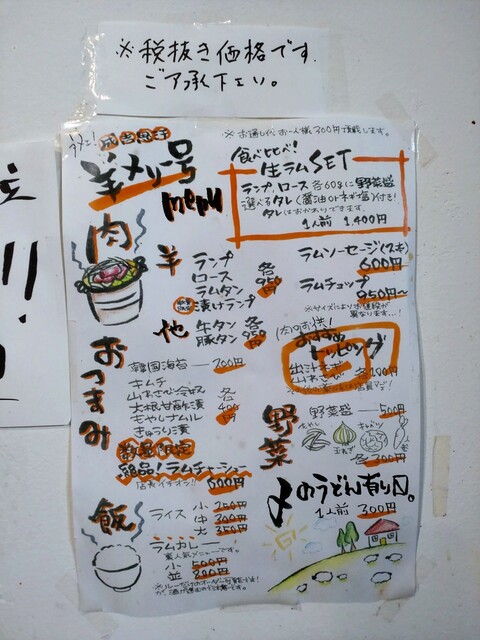 ※税抜き価格です
ご了承下さい。
ウメェ!
成吉思汗
羊メリー号
menu
※お通し代お一人様300円頂戴します。
食べ比べ!
生ラムSET
ランプ、ロース 各60gに野菜盛
選べるタレ(醤油orネギ塩)付き!
タレはおかわりできます。
1人前 1,400円
肉
羊
ランプ
ロース
ラムタン
漬けランプ
各950円
他
牛タン
豚タン
各950円
ラムソーセージ(2本)
600円
ラムチョップ
850円〜
※サイズによりお値段が
異なります…!
肉のお供!
おすすめ
トッピング
出汁ネギ
山わさび
おつまみ
韓国海苔 200円
キムチ
大根甘酢漬
もやしナムル
きゅうり漬
各400円
数量限定
絶品!ラムチャーシュー
店長イチオシ!!
600円
野菜
野菜盛 500円
もやし
玉ねぎ
キャベツ
各300円
〆のうどん有り〼。
1人前 300円
飯
ライス
小 250円
中 300円
大 350円
ラムカレー
裏人気メニューです。
小 500円
並 800円